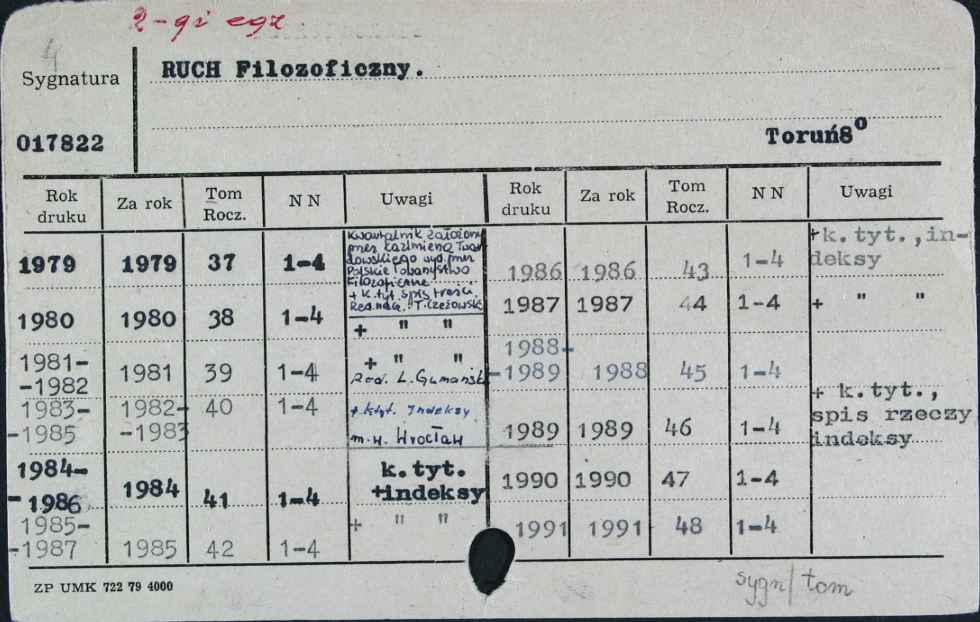 2-gi egz.
4
Sygnatura
RUCH Filozoficzny.
017822
Toruń 8°
Rok druku Za rok Tom Rocz. N N Uwagi
1979 1979 37 1-4 Kwartalnik założony
przez Kazimierza Twar
dowskiego wyd. przez
Polskie Towarzystwo
Filozoficzne
+ k.tyt. spis treści.
Red. nacz. T. Czeżowski
1980 1980 38 1-4 + " "
1981-
-1982 1981 39 1-4 + " "
Red. L. Gumański
1983- 1982- 40 1-4 + k.tyt. Indeksy
-1985 -1983 m.w. Wrocław
1984- k.tyt.
-1986 1984 41 1-4 +indeksy
1985- + " "
-1987 1985 42 1-4
Rok druku Za rok Tom Rocz. N N Uwagi
+k.tyt.,in-
1986 1986 43 1-4 deksy
1987 1987 44 1-4 + " "
1988-
-1989 1988 45 1-4
+ k.tyt.,
spis rzeczy
1989 1989 46 1-4 indeksy
1990 1990 47 1-4
1991 1991 48 1-4
ZP UMK 722 79 4000
sygn/tom